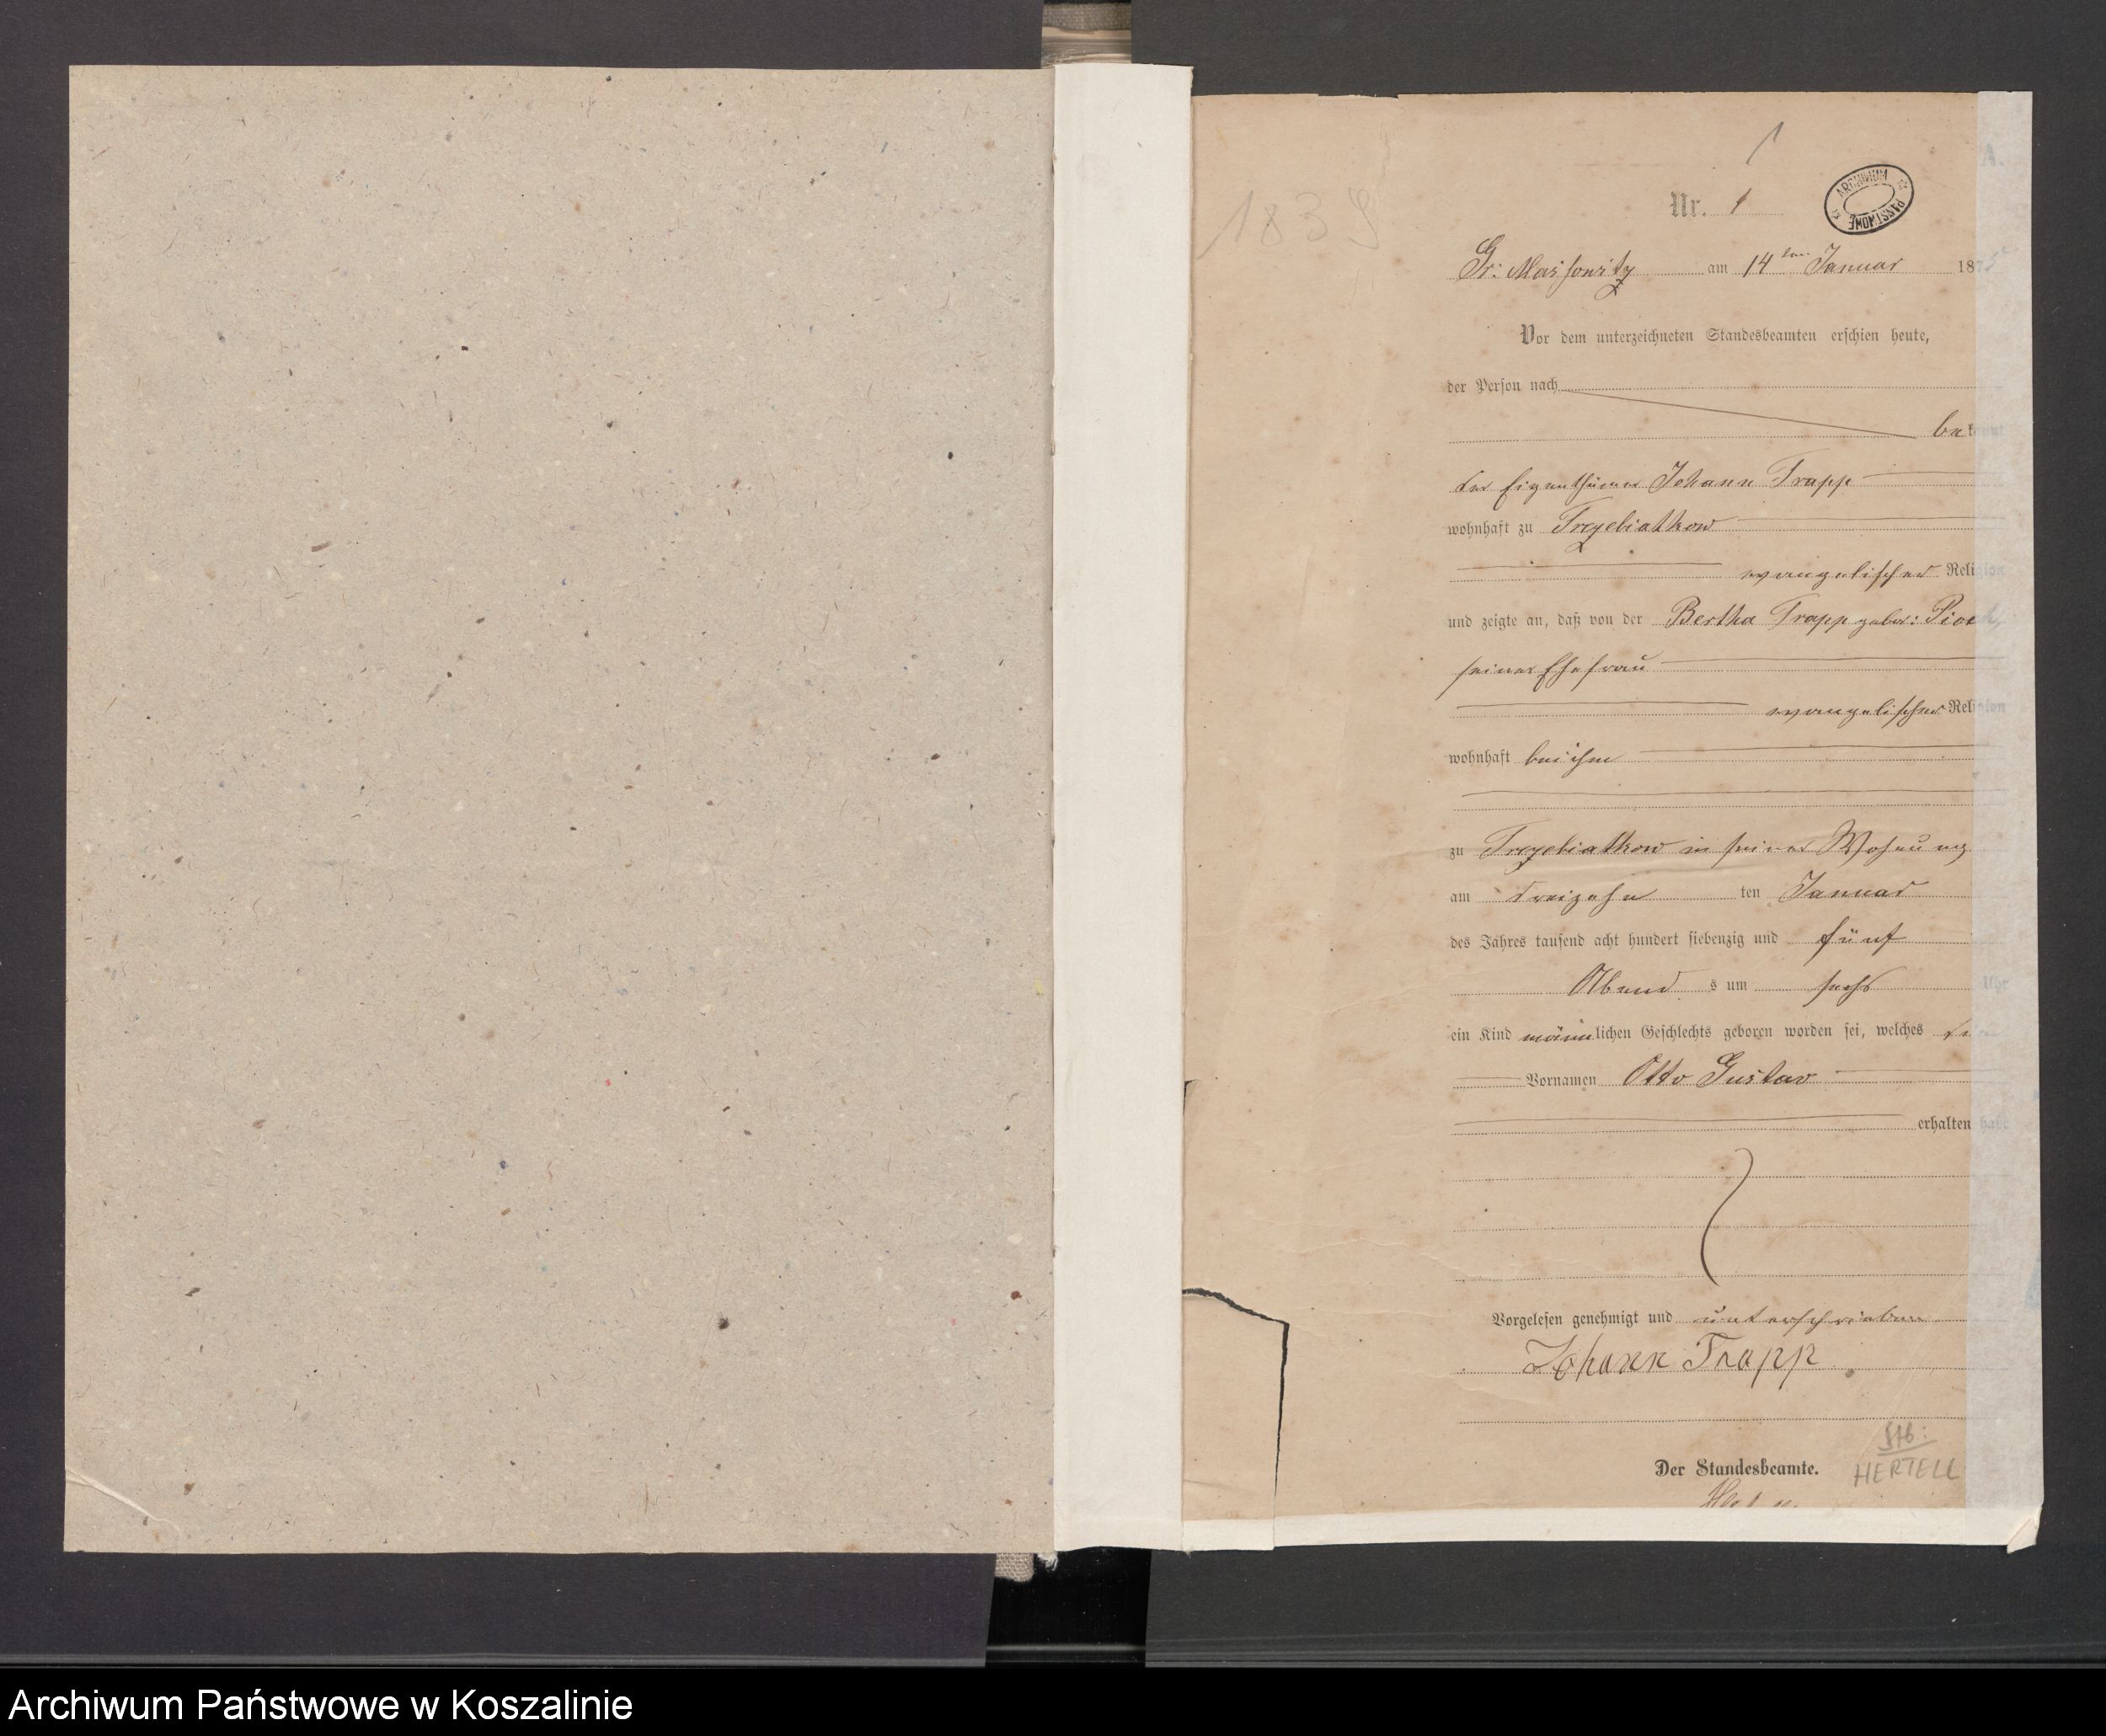 1
A.
Nr. 1
ARCHIWUM PAŃSTWOWE
1839
Gr: Massowitz am 14ten Januar 1875
Vor dem unterzeichneten Standesbeamten erschien heute,
der Person nach
bekannt
der Eigenthümer Johann Trapp
wohnhaft zu Trzebiatkow
evangelischer Religion
und zeigte an, daß von der Bertha Trapp gebor:
seiner Ehefrau
evangelischer Religion
wohnhaft bei ihm
zu Trzebiatkow in seiner Wohnung
am dreizehn ten Januar
des Jahres tausend acht hundert siebenzig und fünf
Abend s um sechs Uhr
ein Kind männlichen Geschlechts geboren worden sei, welches
Vornamen Otto Gustav
erhalten habe
Vorgelesen genehmigt und unterschrieben
Johann Trapp
Stb:
Der Standesbeamte. HERTELL
Archiwum Państwowe w Koszalinie